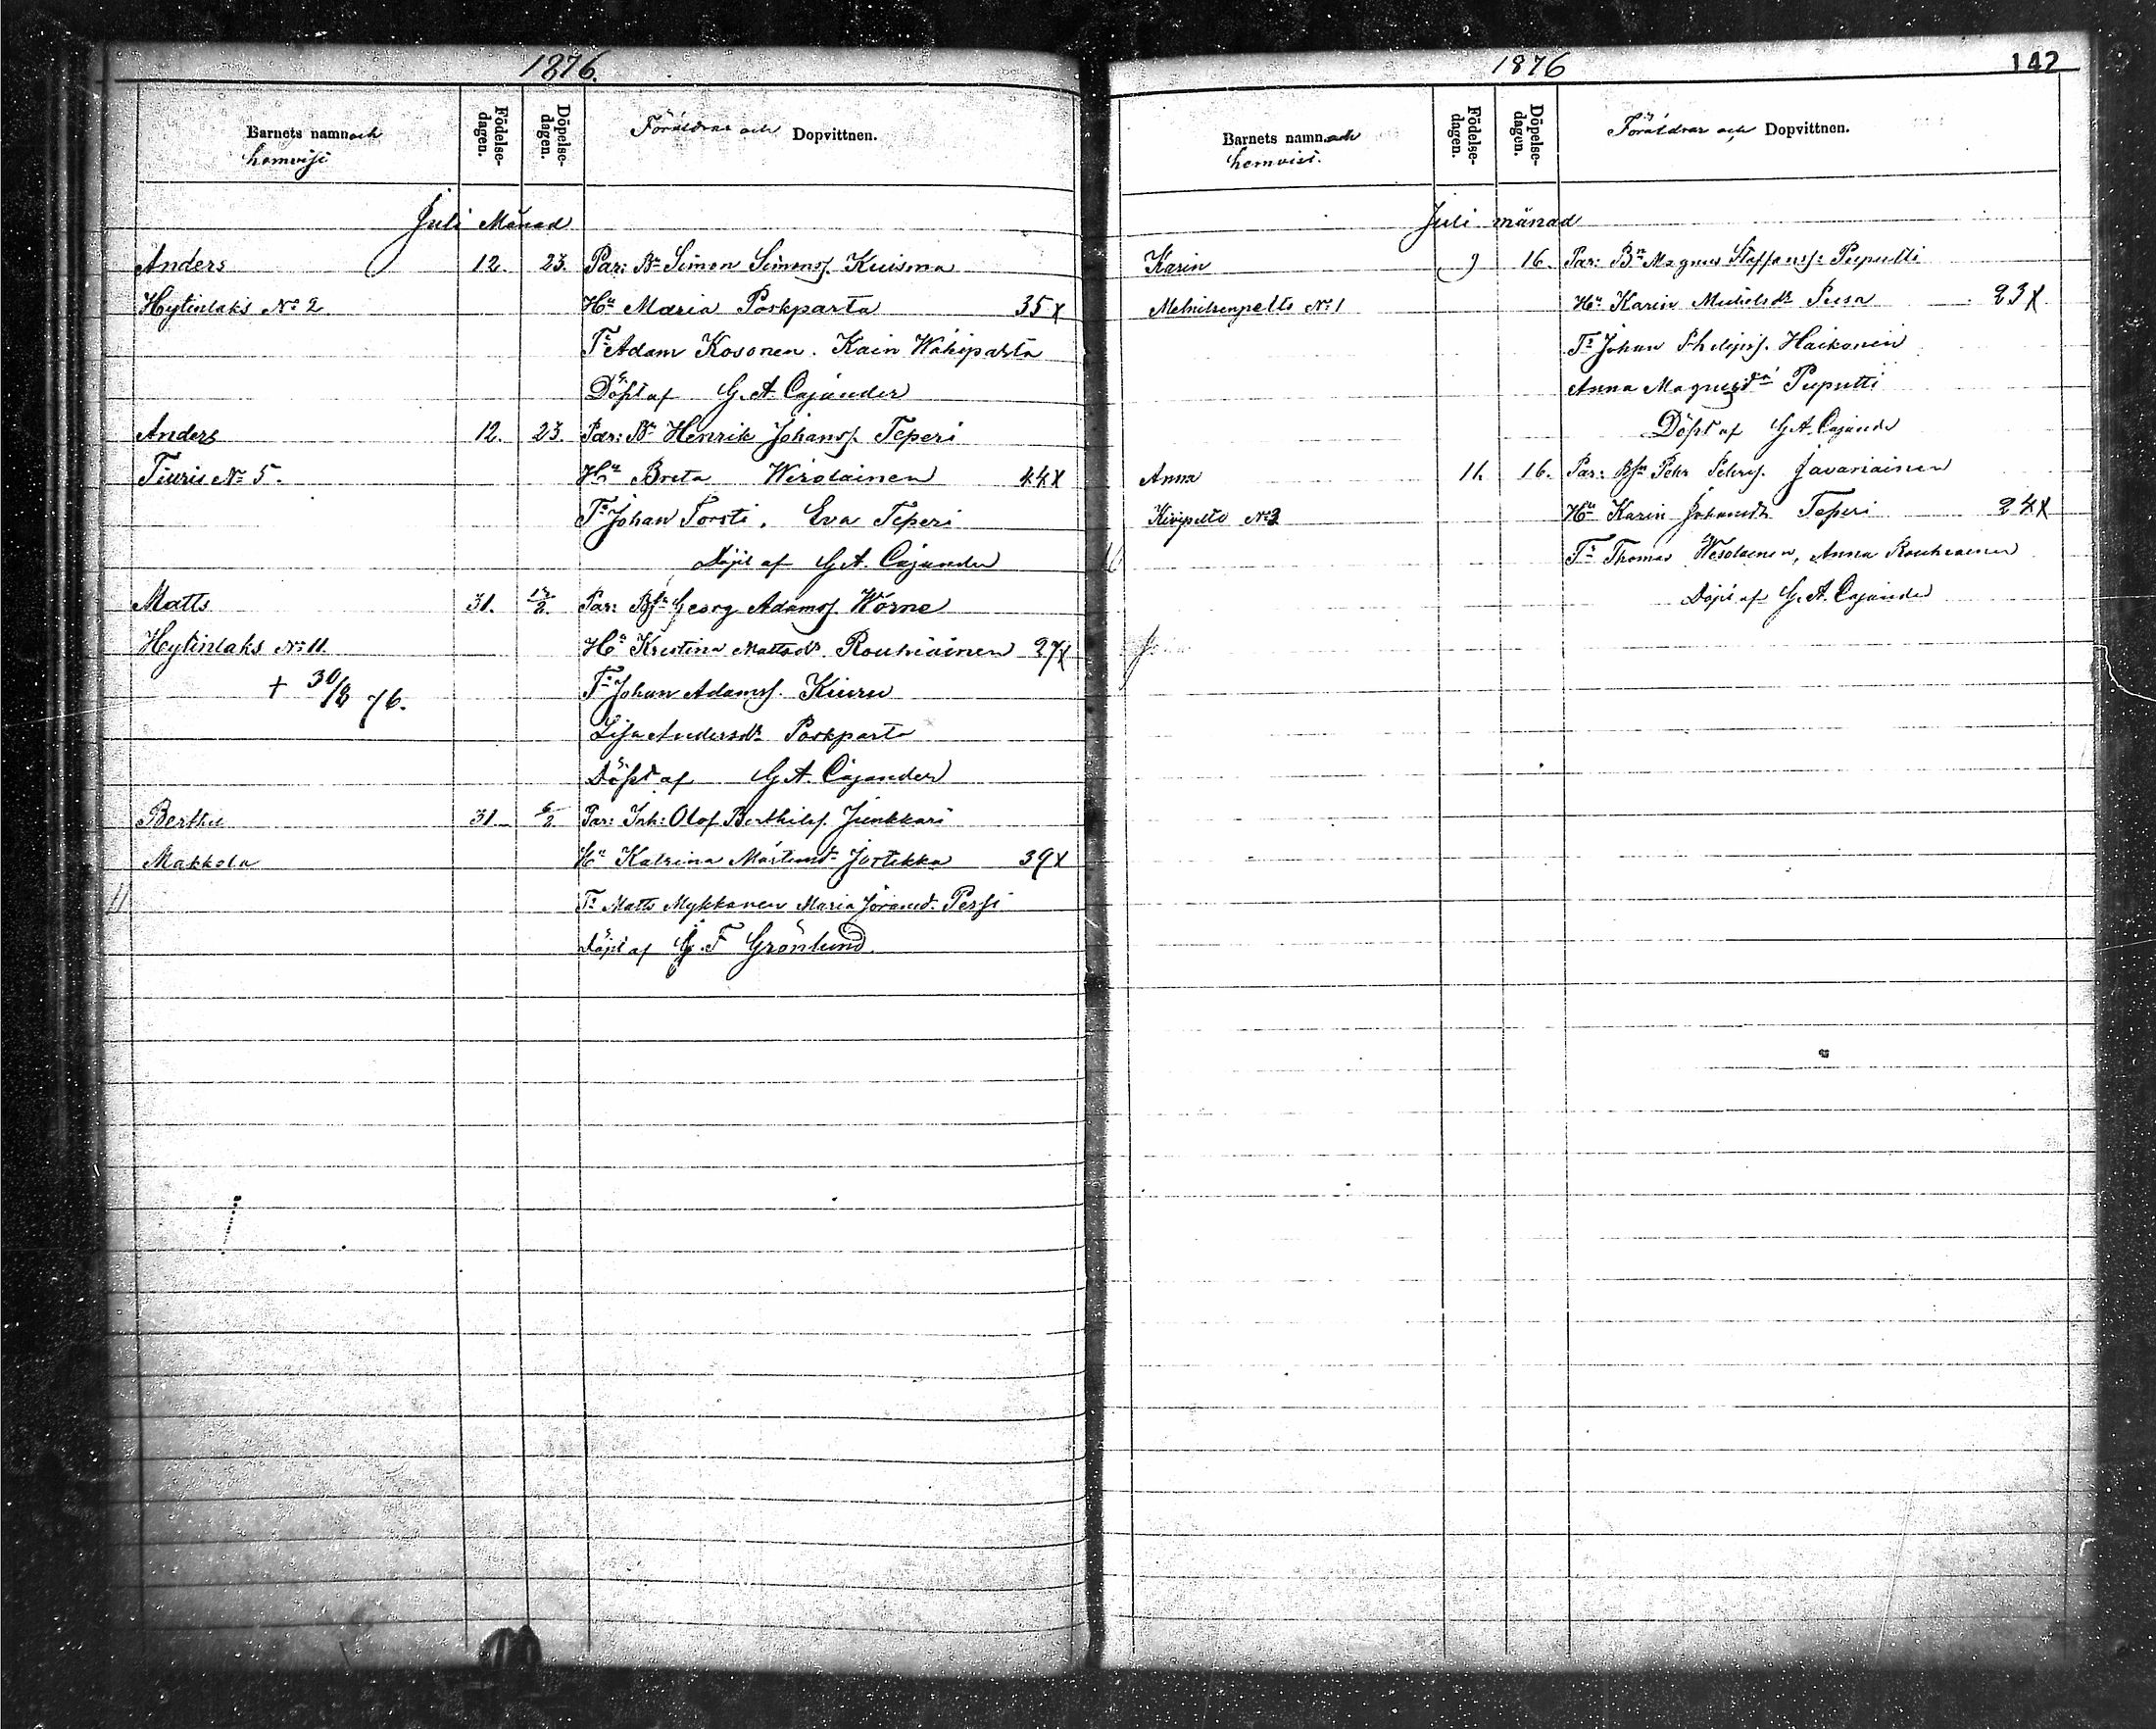 1876.
Barnets namn och hemvist
Födelse-dagen.
Döpelse-dagen.
Föräldrar och Dopvittnen.
Juli Månad
Anders 12. 23. Par: Bn Simon Simonss. Kuisma
Hytinlaks No 2 Hu Maria Poskparta 35 X
Te Adam Kosonen. Kain Wähäparta
Döpt af G. A. Cajander
Anders 12. 23. Par: Bn Henrik Johanss. Teperi
Tiuris No 5. Hu Breta Wirolainen 44 X
Te Johan Torsti, Eva Teperi
Döpt af G. A. Cajander
Matts 31. Par: Georg Adamss. Wörne
Hytinlaks No 11. Hu Kristina Mattsdr Rouhiainen 27 X
+ 30/8 76. Te Johan Adamss. Kiuru
Lisa Andersdr Poskparta
Döpt af G. A. Cajander
Berthil 31. 6/8 Par: Inh: Olof Berthilss. Junkkari
Makkola Hu Katrina Mårtensd. Jortikka 39 X
Te Matts Mykkänen Maria Göransd. Persi
Döpt af G. F. Grönlund
1876
142
Barnets namn och hemvist.
Födelse-dagen.
Döpelse-dagen.
Föräldrar och Dopvittnen.
Juli månad
Karin 9 16. Par: Bn Magnus Staffanss: Puputti
No 1 Hu Karin Michelsdr Susa 23 X
Te Johan Philipss. Haikonen
Anna Magnusdr Puputti
Döpt af G. A. Cajander
Anna 11. 16. Par: Pehr Pehrss. Javanainen
Kivipelto No 3 Hu Karin Johansdr Teperi 24 X
Te Thomas Wesolainen, Anna Rouhiainen
Döpt af G. A. Cajander